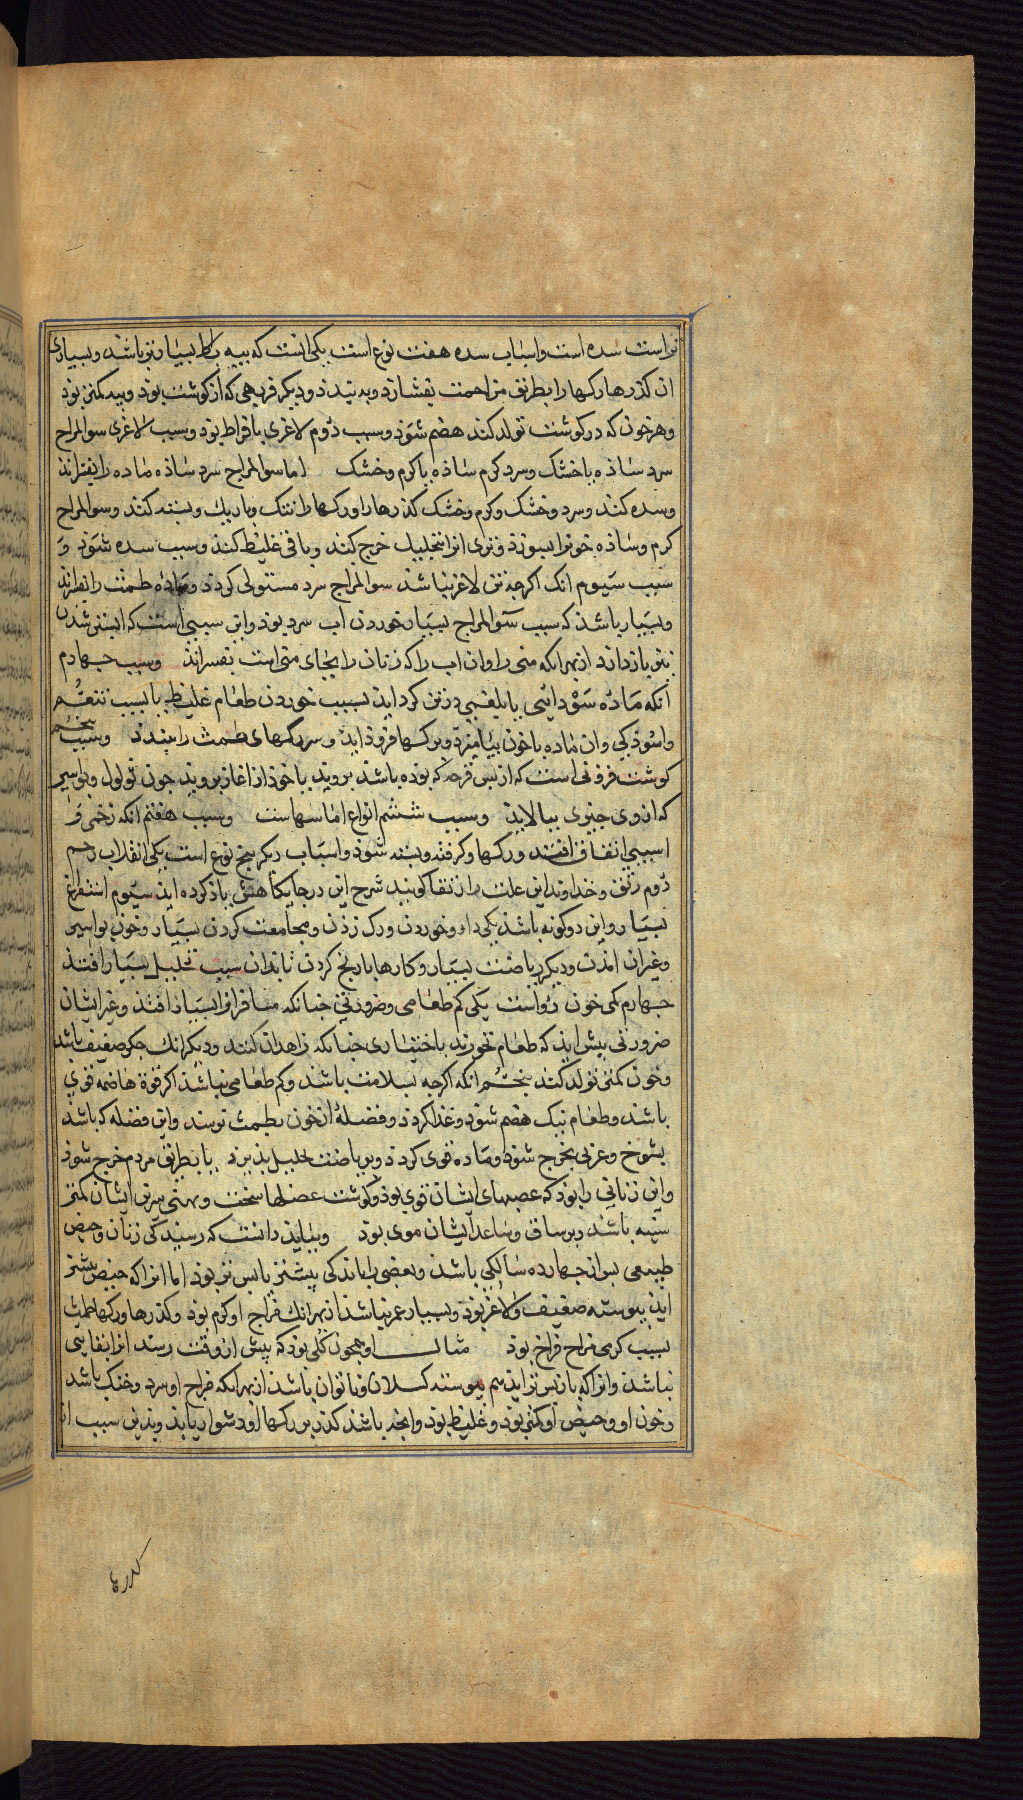 تراست سده است و اسباب سده هفت نوع است یکی انست که بیه باطل بسیار تر باشد و بسیاری
ان کذرها رکها را بطریق مزاحمت بفشارد و ببندد و دیکر فربهی که از کوشت بود و بیه کمتر بود
و هر خون که در کوشت تولد کند هضم شود و سبب دوم لاغری بافراط بود و سبب لاغری سوالمزاج
سرد ساذه با خشک و سرد کرم ساذه با کرم و خشک اما سوالمزاج سرد ساذه ماده را بفسراند
و سده کند و سرد و خشک و کرم و خشک کذرها را و رکها را تنک و باریک و بسته کند و سوالمزاج
کرم و ساذه خونرا بسوزد و تری انرا بتحلیل خرج کند و باقی غلیظ کند و سبب سده شود و
سبب سیوم انک اکرچه تن لاغر نباشد سوالمزاج سرد مستولی کردد و ماده طمث را بفسراند
و بسیار باشد که سبب سوالمزاج بسیار خوردن اب سرد بود و این سببی است که ابستن شدن
نیز بازدارد از بهر انکه منی را و ان اب را که زنان را بجای منی است بفسراند و سبب چهارم
انکه ماده سودائی یا بلغمی در تن کرد اید بسبب خوردن طعام غلیظ یا بسبب تنعم
و اسوذکی و ان ماده با خون بیامیزد و برکها فروذ اید و سر رکهای طمث را ببندد و سبب پنجم
کوشت فزونی است که از پس قرحه که بوده باشد بروید یا خود از اغاز بروید چون ثولول و بواسیر
که از وی چیزی بپالاید و سبب ششم انواع اماسهاست و سبب هفتم انکه زخمی و
اسیبی اتفاق افتد و رکها و کرفته و بسته شود و اسباب دیکر پنج نوع است یکی انقلاب رحم
دوم رتق و خداوند این علت را رتقا کویند شرح این در جایکاهش یاذ کرده اید سیوم استفراغ
بسیار و این دو کونه باشد یکی دارو خوردن و رک زدن و مجامعت کردن بسیار و خون بواسیر
و غیر ان امدن و دیکر ریاضت بسیار و کارها با رنج کردن تا بدان سبب تحلیل بسیار افتد
چهارم کمی خون و است یکی کم طعامی و ضرورتی چنانکه مسافرانرا بسیار افتد و غیر ایشان
ضرورتی پیش اید که طعام نخورند با اختیاری چنانکه زاهدان کنند و دیکر انک جکر ضعیف باشد
و خون کمتر تولد کند پنجم انکه اکرچه بسلامت باشد و کم طعامی نباشد اکر قوة هاضمه قوی
باشد و طعام نیک هضم شود و غذا کردد و فضلۀ از خون بطمث نرسد و این فضله که باشد
بشوخ و عرق بخرج شود و ماده قوی کردد و بریاضت تحلیل پذیرد یا بطریق مردم خرج شود
و این زنانی را بود که عصبهای ایشان قوی بود و کوشت عضلها سخت و بهنی سرین ایشان کمتر
سینه باشد و بر ساق و ساعد ایشان موی بود و بباید دانست که رسیدکی زنان و حیض
طبیعی پس از چهارده سالکی باشد و بعضی را باندکی پیشتر یا پس تر بود اما انرا که حیض پیشتر
اید پیوسته ضعیف و لاغر بود و بسیار عمر نباشد از بهر انک مزاج او کرم بود و کذرها و رکها طمث
بسبب کرمی مزاج فراخ بود مثال او همچون کلی بود که پیش از وقت رسد انرا بقایی
نباشد و انرا که باز پس تر اید هم پیوسته کسلان و ناتوان باشد از بهر انکه مزاج او سرد و خشک باشد
و خون او و حیض او کمتر بود و غلیظ بود و انچه باشد کذر بر رکها او دشوار یابد و بدین سبب از